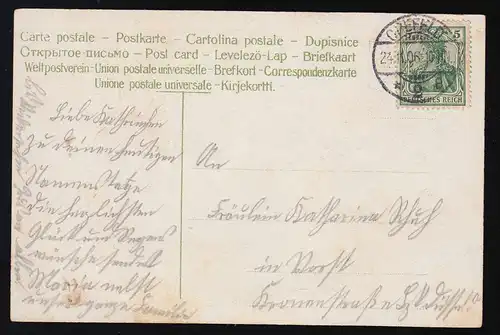 Carte postale – Postkarte – Cartolina postale – Dopisnice
Открытое письмо – Post card – Levelező-Lap – Briefkaart
Weltpostverein - Union postale universelle - Brefkort - Correspondenzkarte
Unione postale universale - Kirjekortti.
CREFELD
5
DEUTSCHES REICH
Liebe Kathrinchen
zu deinem heutigen
Namenstage
die herzlichsten
Glück und Segens
wünsche sendet
Maria nebst
unser ganze Familie
An
Fräulein Katharina Schuh
in Vorst
Kronenstraße